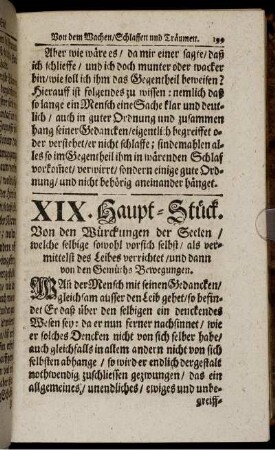 Von dem Wachen/Schlaffen und Träumen. 199
Aber wie wäre es / da mir einer sagte/daß
ich schlieffe/ und ich doch munter oder wacker
bin/wie soll ich ihm das Gegentheil beweisen?
Hierauff ist folgendes zu wissen: nemlich daß
so lange ein Mensch eine Sache klar und deut-
lich / auch in guter Ordnung und zusammen
hang seiner Gedancken/eigentlich begreiffet o-
der verstehet/er nicht schlaffe; sindemahlen al-
les so im Gegentheil ihm in wärenden Schlaf
vorkomet/ verwirrt/ sondern einige gute Ord-
nung/ und nicht behörig aneinander hänget.
XIX. Haupt-Stück.
Von den Würckungen der Seelen /
welche selbige sowohl vor sich selbst/ als ver-
mittelst des Leibes verrichtet /und dann
von den Gemüths Bewegungen.
WAñ der Mensch mit seinen Gedancken/
gleichsam ausser den Leib gehet/so befin-
det Er daß über den selbigen ein denckendes
Wesen sey: da er nun ferner nachsinnet / wie
er solches Dencken nicht von sich selber habe/
auch gleichfalls in allem andern nicht von sich
selbsten abhange / so wird er endlich dergestalt
nothwendig zuschliessen gezwungen / das ein
allgemeines/ unendliches / ewiges und unbe-
greiff-